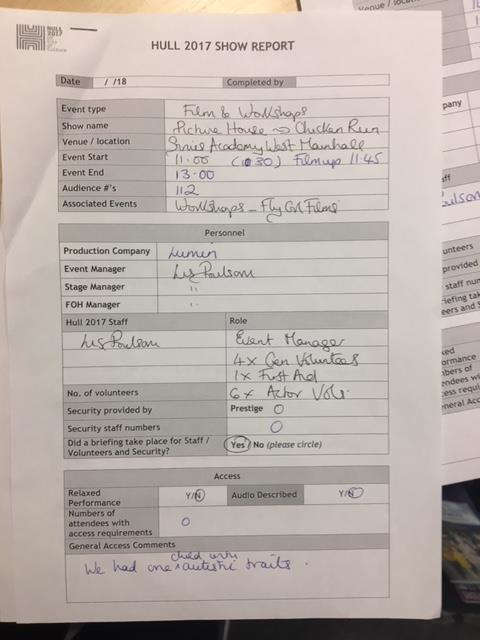 HULL 2017 SHOW REPORT
Date / /18 Completed by
Event type Film & Workshops
Show name Picture House → Chicken Run
Venue / location Sirius Academy West Mainhall
Event Start 11.00 (1030) Film up 11.45
Event End 13.00
Audience #'s 112
Associated Events Workshops - Fly Girl Films
Personnel
Production Company Lumen
Event Manager Liz Poulsom
Stage Manager "
FOH Manager "
Hull 2017 Staff Role
Liz Poulsom Event Manager
4x Gen Volunteers
1x First Aid
No. of volunteers 6x Actor Vols.
Security provided by Prestige 0
Security staff numbers 0
Did a briefing take place for Staff / Volunteers and Security? Yes / No (please circle)
Access
Relaxed Performance Y/N Audio Described Y/N
Numbers of attendees with access requirements 0
General Access Comments
We had one child with autistic traits.